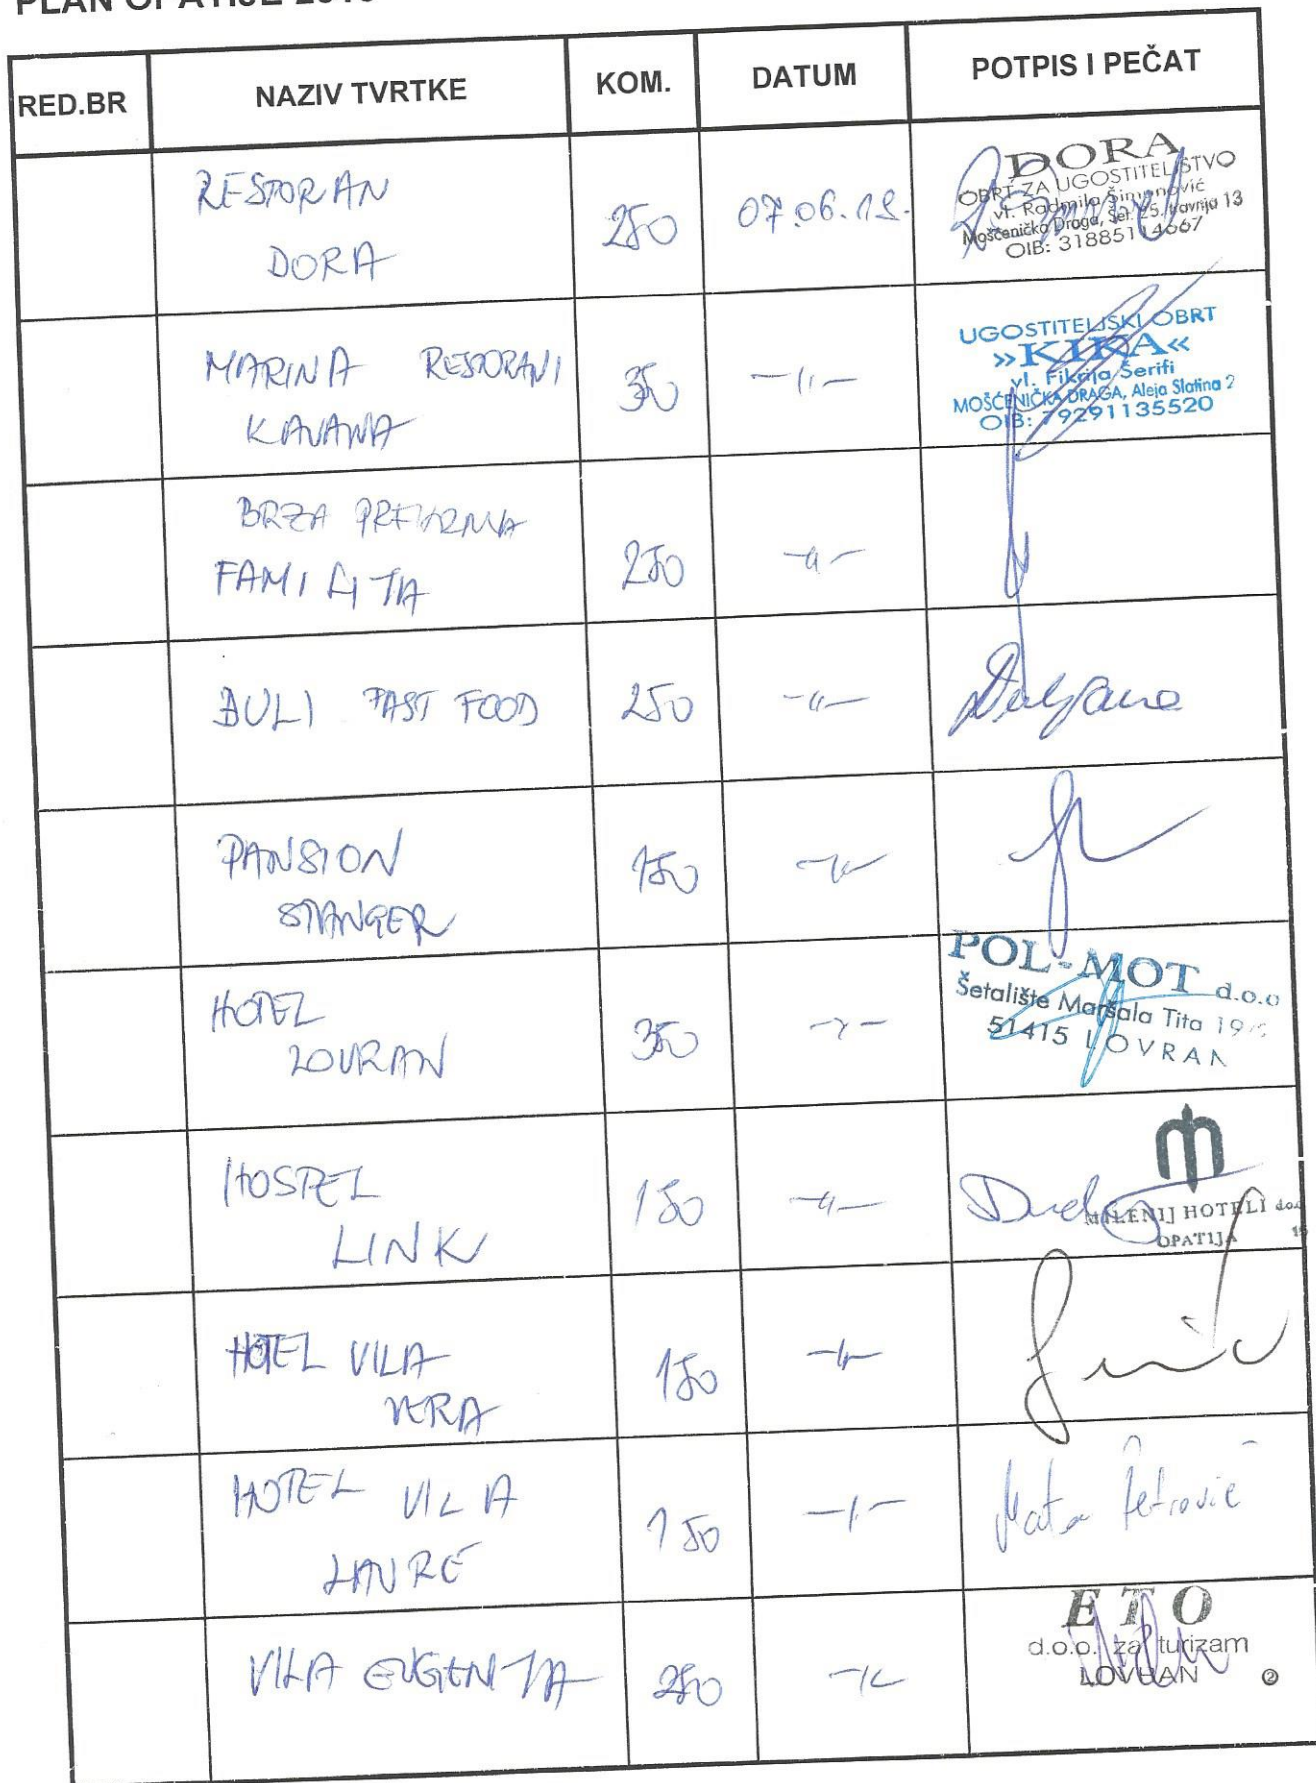 RED.BR NAZIV TVRTKE KOM. DATUM POTPIS I PEČAT
RESTORAN
DORA
250
07.06.18.
DORA
OBRT ZA UGOSTITELJSTVO
vl. Radmila Šimonović
Mošćenička Draga, Šet. 25. travnja 13
OIB: 31885114667
MARINA RESTORANI
KAVANA
350
-〃-
UGOSTITELJSKI OBRT
»KIKA«
vl. Fikrija Šerifi
MOŠĆENIČKA DRAGA, Aleja Slatina 2
OIB: 79291135520
BRZA PREHRANA
FAMILIJA
250
-〃-
BULI FAST FOOD
250
-〃-
PANSION
STANGER
150
-〃-
HOTEL
LOVRAN
350
-〃-
POL-MOT d.o.o
Šetalište Maršala Tita 19
51415 LOVRAN
HOSTEL
LINK
150
-〃-
MILENIJ HOTELI d.o.
OPATIJA
HOTEL VILA
VERA
150
-〃-
HOTEL VILA
LAURE
150
-〃-
Petrović
VILA EUGENIJA
250
-〃-
ETO
d.o.o. za turizam
LOVRAN
2